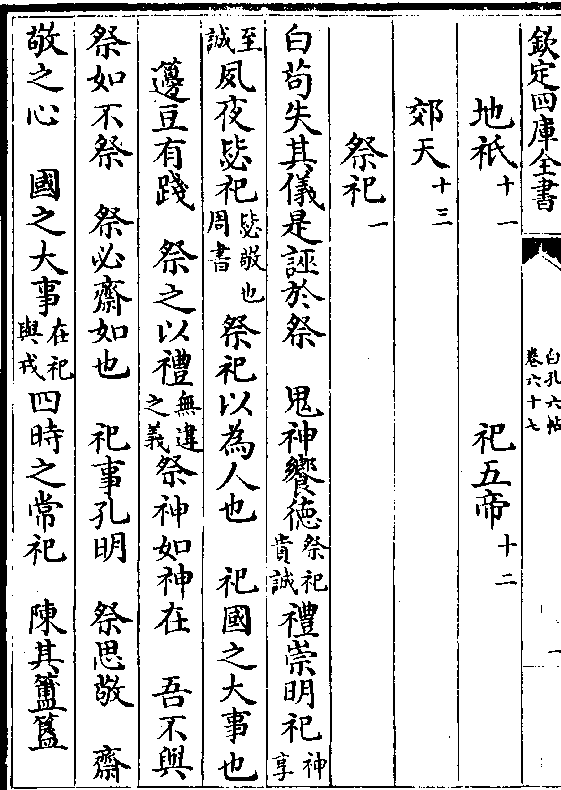 欽定四庫全書
白孔六帖
卷六十七
一
地祇十一 祀五帝十二
郊天十三
祭祀一
白茍失其儀是誣於祭 鬼神饗德祭祀貴誠禮崇明祀神享
至誠夙夜毖祀毖敬也周書 祭祀以為人也 祀國之大事也
籩豆有踐 祭之以禮無違之義祭神如神在 吾不與
祭如不祭 祭必齋如也 祀事孔明 祭思敬 齋
敬之心 國之大事在祀與戎四時之常祀 陳其簠簋